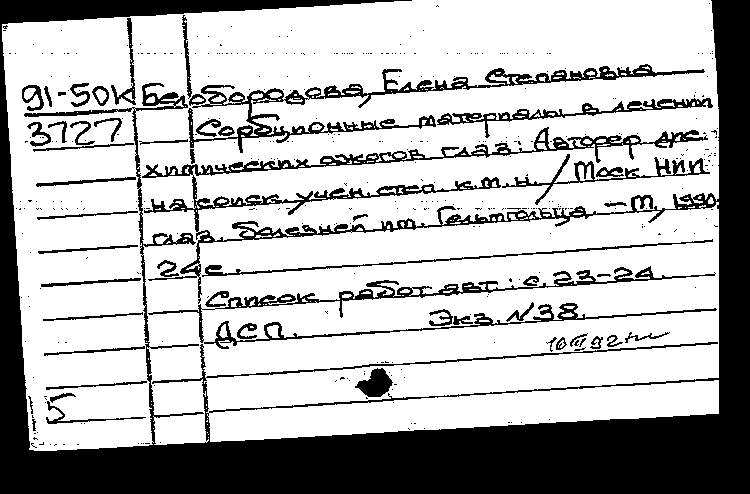 91-50К Белобородова, Елена Степановна
3727 Сорбционные материалы в лечении
химических ожогов глаз: Автореф дис.
на соиск. учен. степ. к.м.н. / Моск НИИ
глаз. болезней им. Гельмгольца. — М, 1990.
24с.
Список работ авт: с. 23-24.
ДСП. Экз. №38.
10 III 92
5